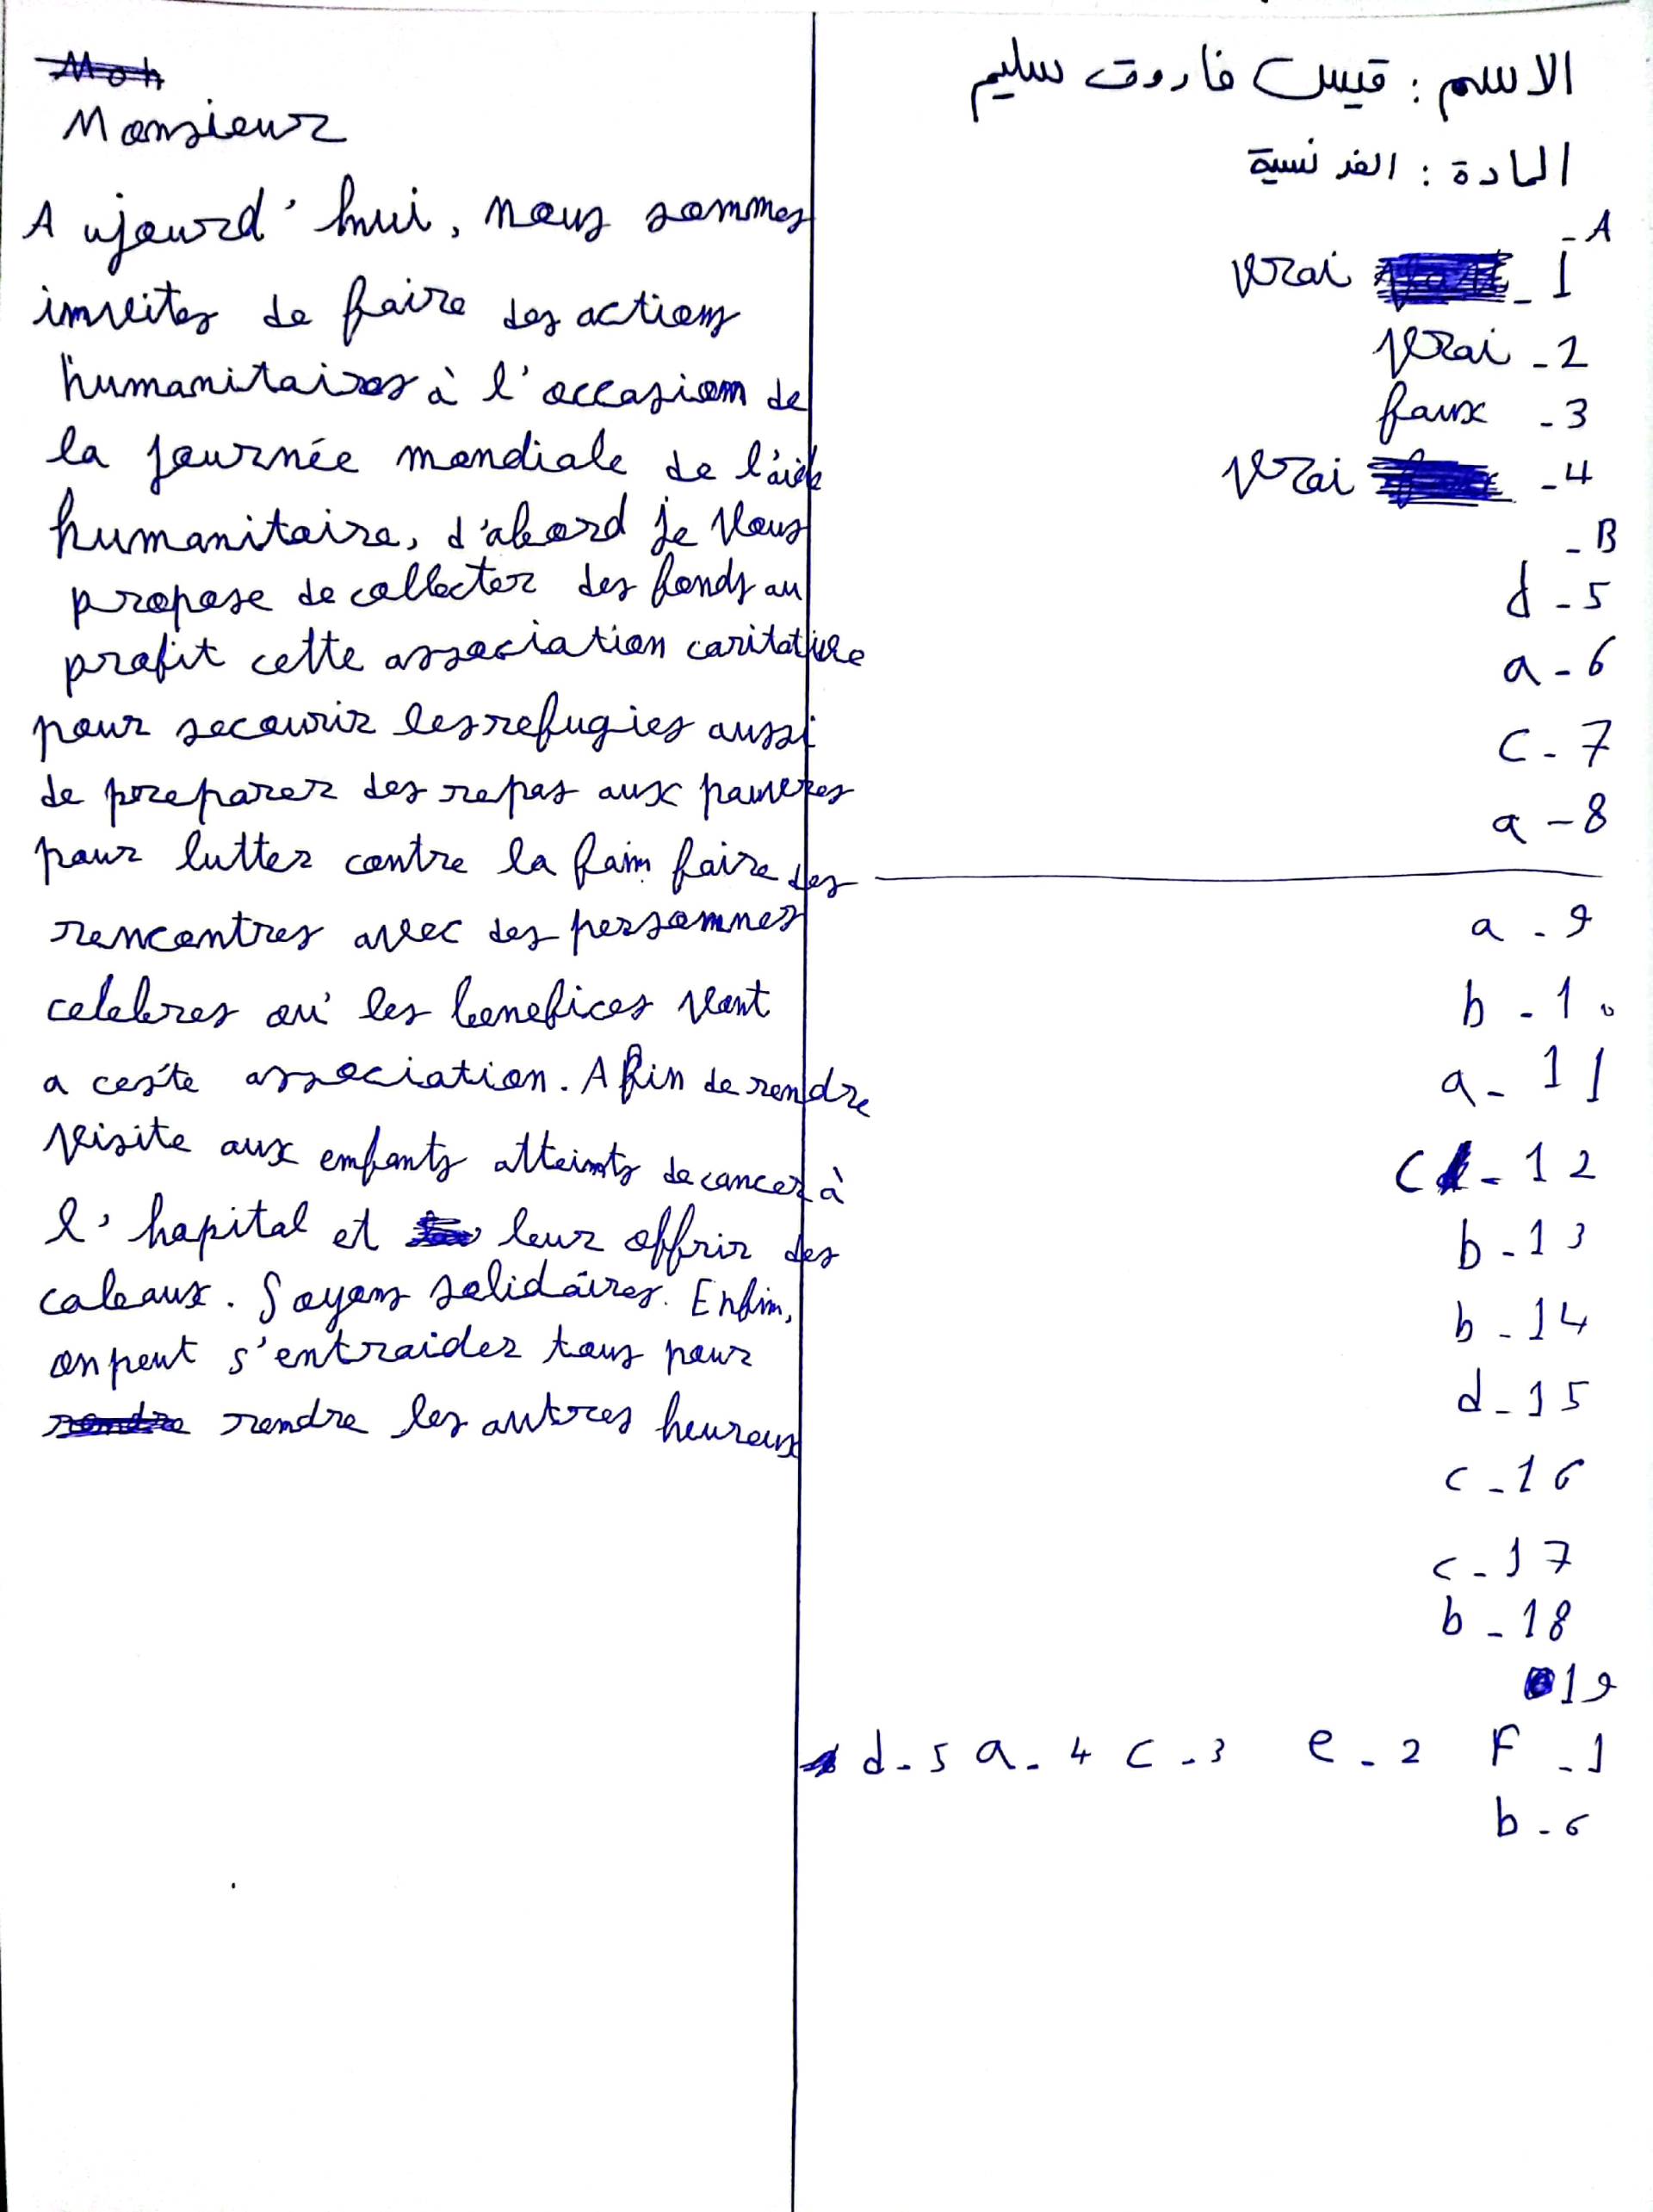 الاسم : قيس فاروق سليم
المادة : الفرنسية
A -
1 - vrai
2 - vrai
3 - faux
4 - vrai
B -
5 - d
6 - a
7 - c
8 - a
9 - a
10 - b
11 - a
12 - c
13 - b
14 - b
15 - d
16 - c
17 - c
18 - b
19
1 - F 2 - e 3 - c 4 - a 5 - d
6 - b
Monsieur
Aujourd'hui, nous sommes
invites de faire des actions
humanitaires à l'occasion de
la journée mondiale de l'aide
humanitaire, d'abord je vous
propose de collecter des fonds au
profit cette association caritative
pour secourir les refugies aussi
de preparer des repas aux pauvres
pour lutter contre la faim faire des
rencontres avec des personnes
celebres où les benefices vont
a cette association. Afin de rendre
visite aux enfants atteints de cancer à
l'hopital et leur offrir des
cadeaux. Soyons solidaires. Enfin,
on peut s'entraider tous pour
rendre les autres heureux